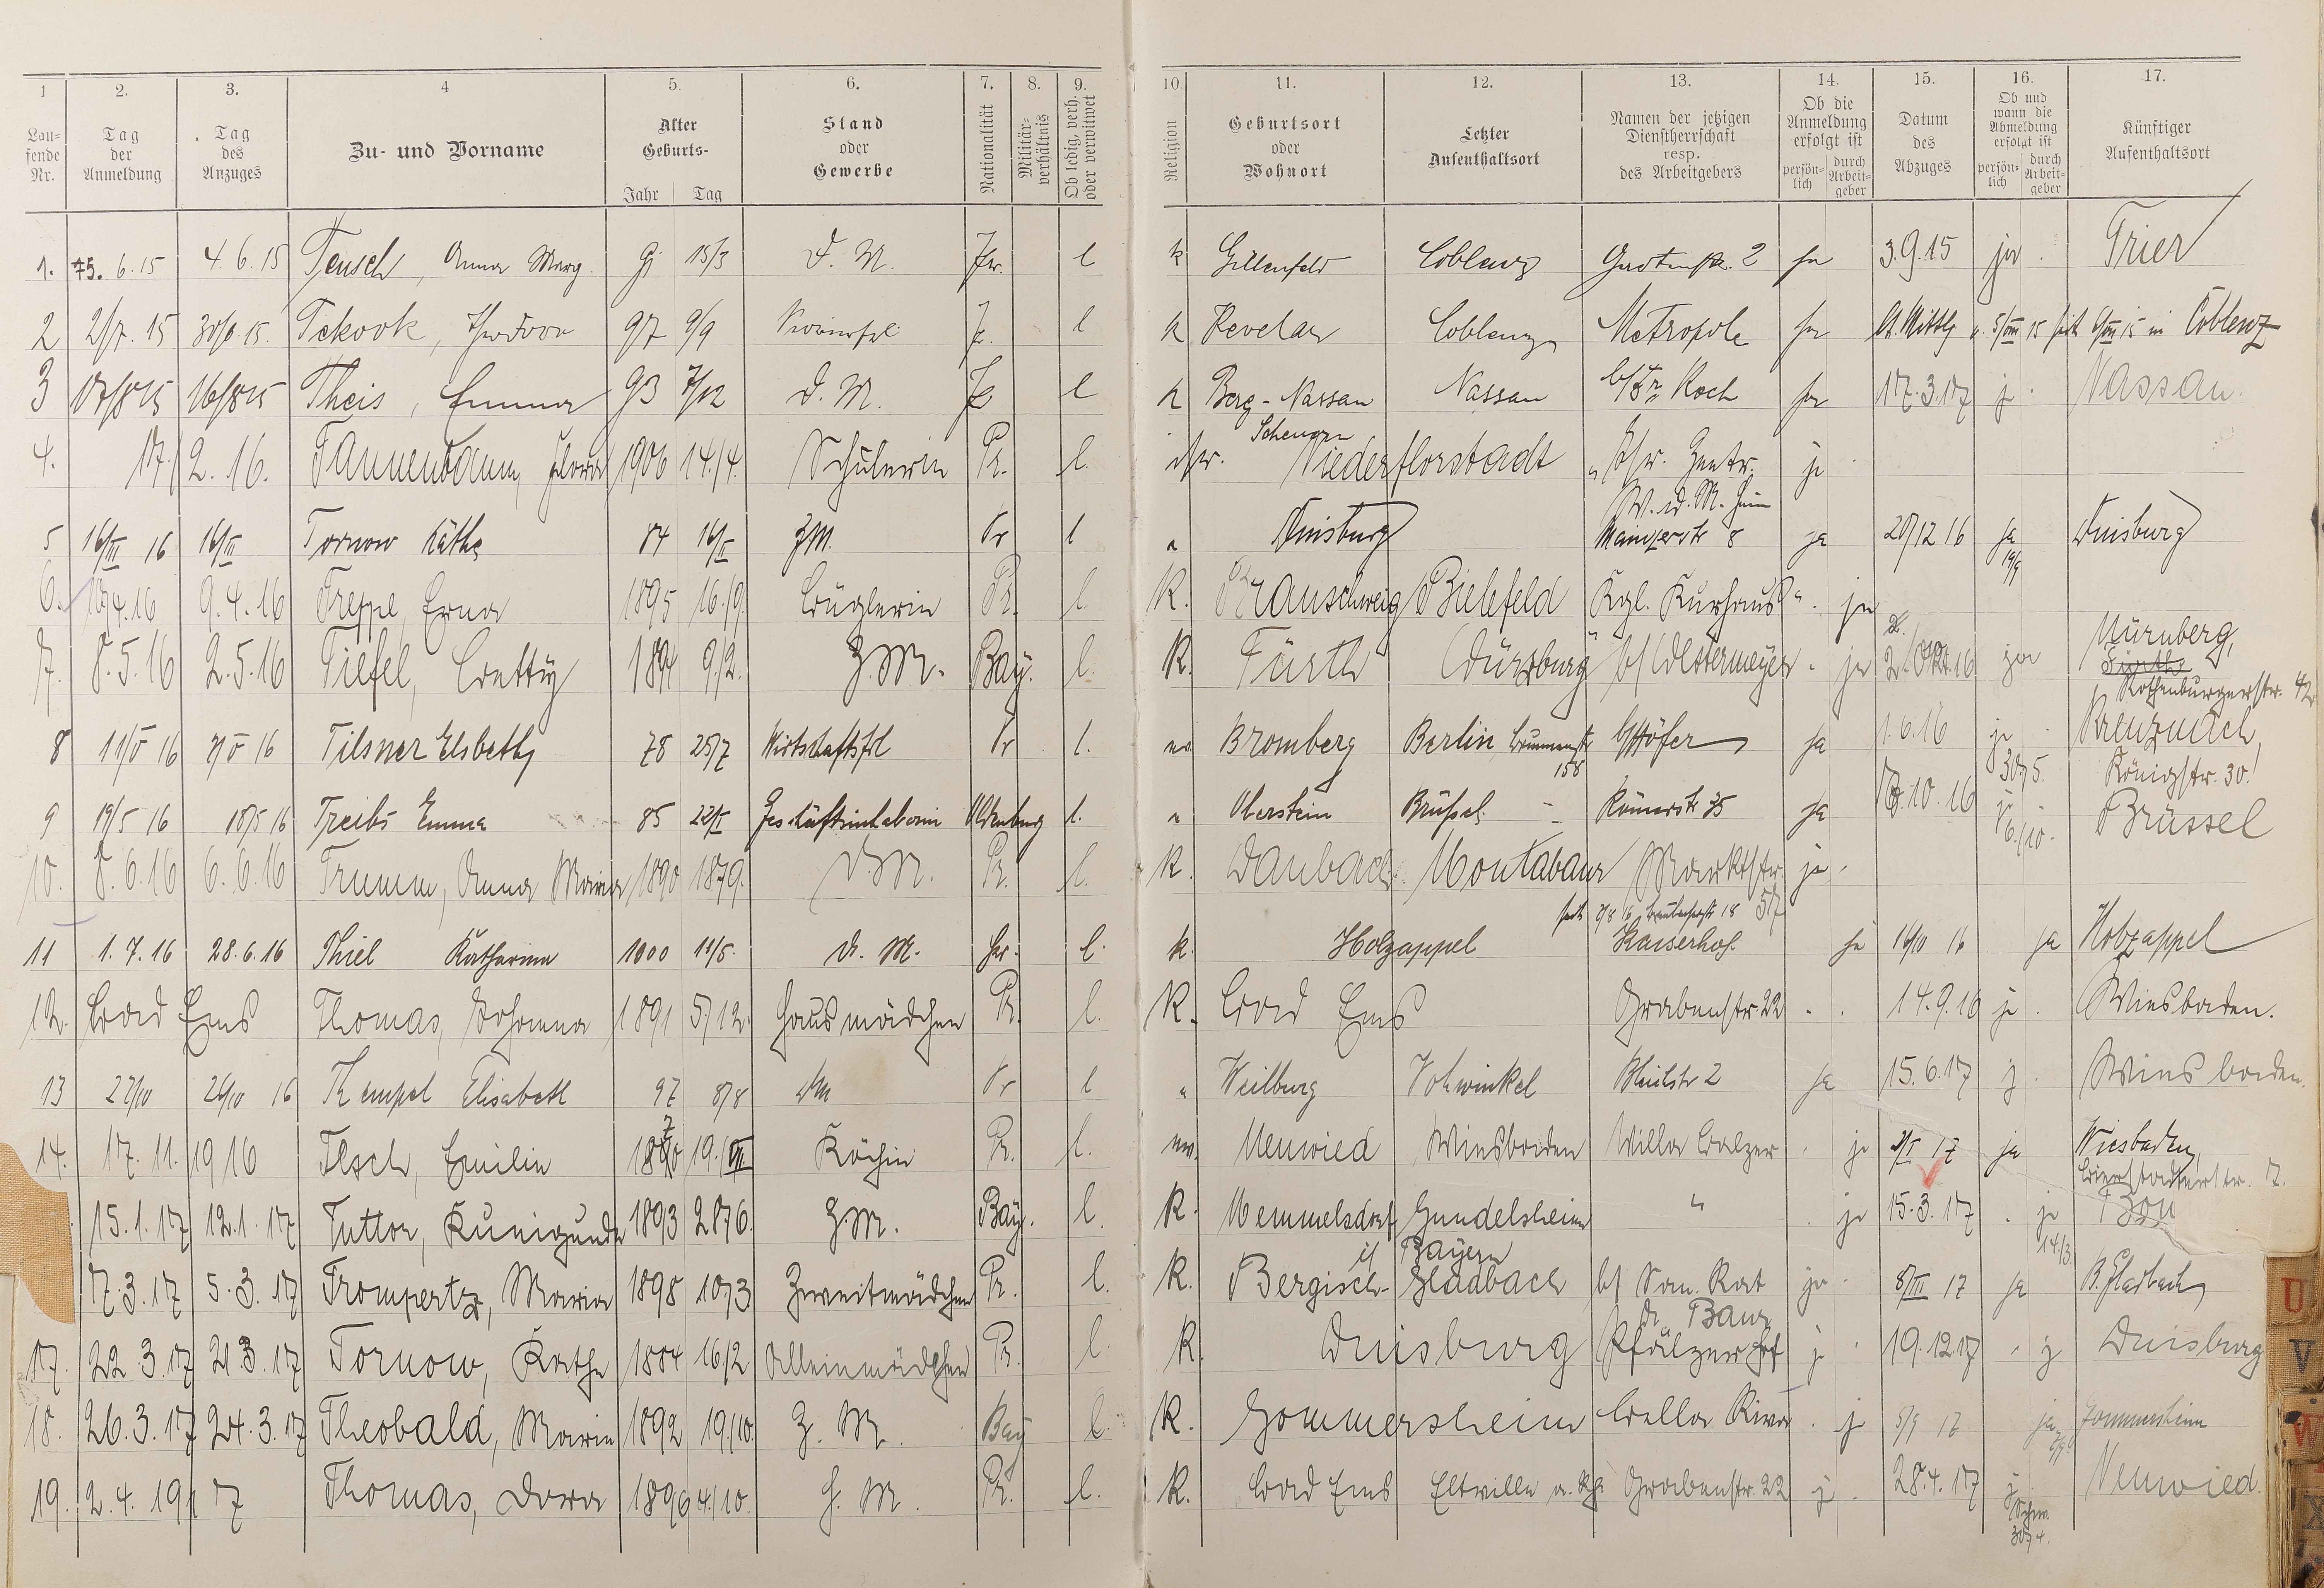 1 2. 3. 4 5. 6. 7. 8. 9. 10. 11. 12. 13. 14. 15. 16. 17.
Laufende Nr. Tag der Anmeldung Tag des Anzuges Zu- und Vorname Alter Geburts- Jahr Tag Stand oder Gewerbe Nationalität Militärverhältnis Ob ledig, verh. oder verwitwet Religion Geburtsort oder Wohnort Letzter Aufenthaltsort Namen der jetzigen Dienstherrschaft resp. des Arbeitgebers Ob die Anmeldung erfolgt ist persönlich durch Arbeitgeber Datum des Abzuges Ob und wann die Abmeldung erfolgt ist persönlich durch Arbeitgeber Künftiger Aufenthaltsort
1. 6.15 4.6.15 Teusch, Anna Marg. 15/3 D. M. Pr. l k Gillenfeld Coblenz 2 ja 3.9.15 ja Trier
2 2/7.15 30/6.15. Tekook, Theodora 97 9/9 l k Kevelar Coblenz Metropole ja 15 in Coblenz
3 17/8 15 16/8 15 Theis, Emma 93 7/12 D. M. Pr. l k Berg-Nassau Nassau b/Fr. Koch ja 17.3.17 j. Nassau.
Scheuern
4. 17./2.16. Tannenbaum, Flora 1906 14./4. Schülerin Pr. l. isr. Niederflorstadt Isr. Zentr. ja
W. u. M. Heim
5 16/III 16 16/III Tornow Käthe 84 16/II ZM. Pr l " Duisburg Mainzerstr 8 ja 20/12 16 ja Duisburg
19/9
6. 10/4.16 9.4.16 Treppe, Erna 1895 16./9. Büglerin Pr. l. K. Braunschweig Bielefeld Kgl. Kurhaus ja
7. 8.5.16 2.5.16 Tiefel, Bettÿ 1894 9./2. Z.M. Baÿ. l. K. Fürth Würzburg b/Westermeÿer. ja 2. Okt. 16 ja Nürnberg,
Fürth
Rothenburgerstr. 42
8 11/V 16 9/V 16 Tilsner Elsbeth 78 25/7 Wirtschaftsfrl Pr l. ev. Bromberg Berlin Brunnenstr 158 b/Höfer ja 1.6.16 ja Kreuznach,
30./5. Königstr. 30.
9 19/5 16 18/5 16 Treibs Emma 85 22/I Geschäftsinhaberin Oldenburg l. " Oberstein Brüssel - Römerstr 35 ja 8.10.16 Brüssel
6./10.
10. 8.6.16 6.6.16 Trumm, Anna Maria 1890 18./9. D.M. Pr. l. K. Daubach Montabaur Marktstr. 57 ja
seit 7/8 16 18
11 1.7.16 28.6.16 Thiel Katharina 1900 11/5. D. M. Pr. l. k. Holzappel Kaiserhof. ja 16/10 16 ja Holzappel
12. Bad Ems Thomas, Johanna 1891 5./12. Hausmädchen Pr. l. K. Bad Ems Grabenstr. 22 . . 14.9.16 ja. Wiesbaden.
13 27/10 26/10 16 Thempel Elisabeth 97 8/8 DM Pr l " Weilburg Vohwinkel Bleichstr 2 ja 15.6.17 j. Wiesbaden.
14. 17.11.1916 Tesch, Emilie 1890 19./VII Köchin Pr. l. ev. Neuwied Wiesbaden Villa Balzer . ja 2/I 17 ja Wiesbaden,
Bierstadterstr. 7.
15.1.17 12.1.17 Tuttor, Kunigunde 1893 28./6. Z.M. Baÿ. l. K. Memmelsdorf Gundelsheim " . ja 15.3.17 . ja Bon
i/ Bayern 14./3.
17.3.17 5.3.17 Trompertz, Maria 1898 10./3 Zweitmädchen Pr. l. K. Bergisch-Gladbach b/ San. Rat ja 8/III 17 ja B. Gladbach
Dr. Baur
17. 22.3.17 21.3.17 Tornow, Käthe 1884 16./2 Alleinmädchen Pr. l. K. Duisburg Pfälzer Hof j. 19.12.17 . j Duisburg
18. 26.3.17 24.3.17 Theobald, Maria 1892 19./10. Z. M. Bay l. K. Gommersheim Villa Riva . j 5/9 17 ja Gommersheim
19. 2.4.1917 Thomas, Dora 1896 4./10. H. M. Pr. l. K. Bad Ems Eltville a. Rh. Grabenstr. 22 j. 28.4.17 j. Neuwied.
30./4.
U
V
W
X